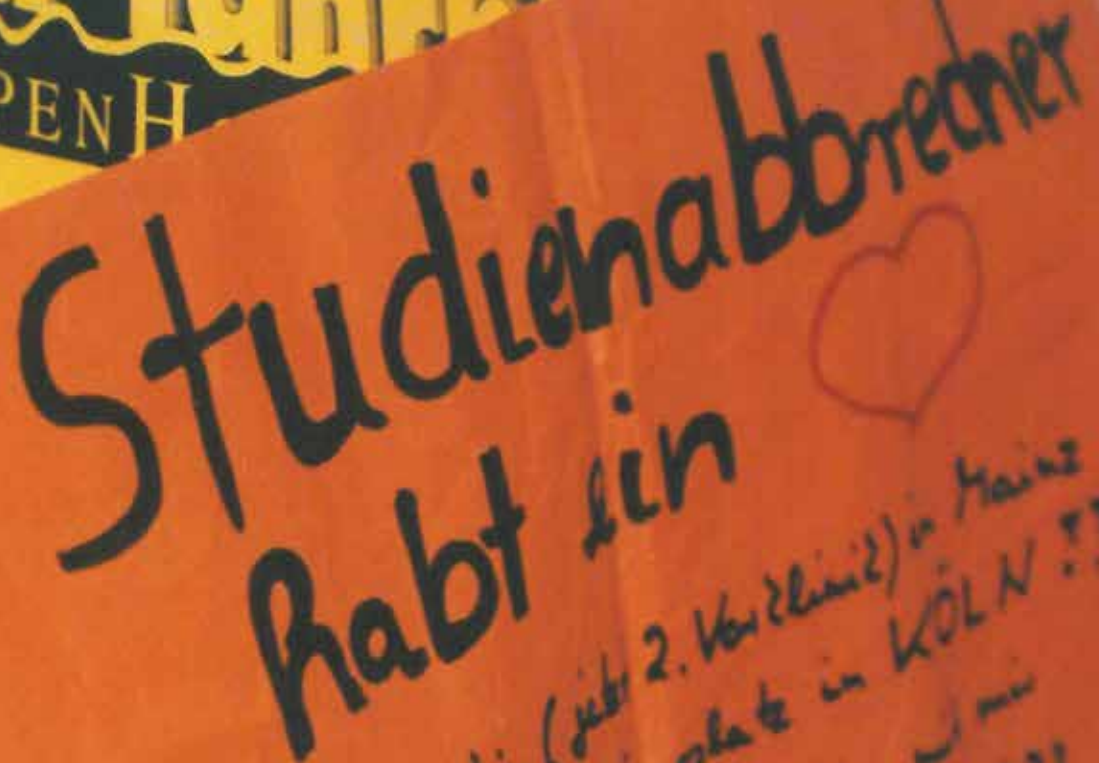 PENH
Studienabbrecher
habt ein
(jetzt 2. Vorklinik) in Mainz
platz in KÖLN !!
und mir